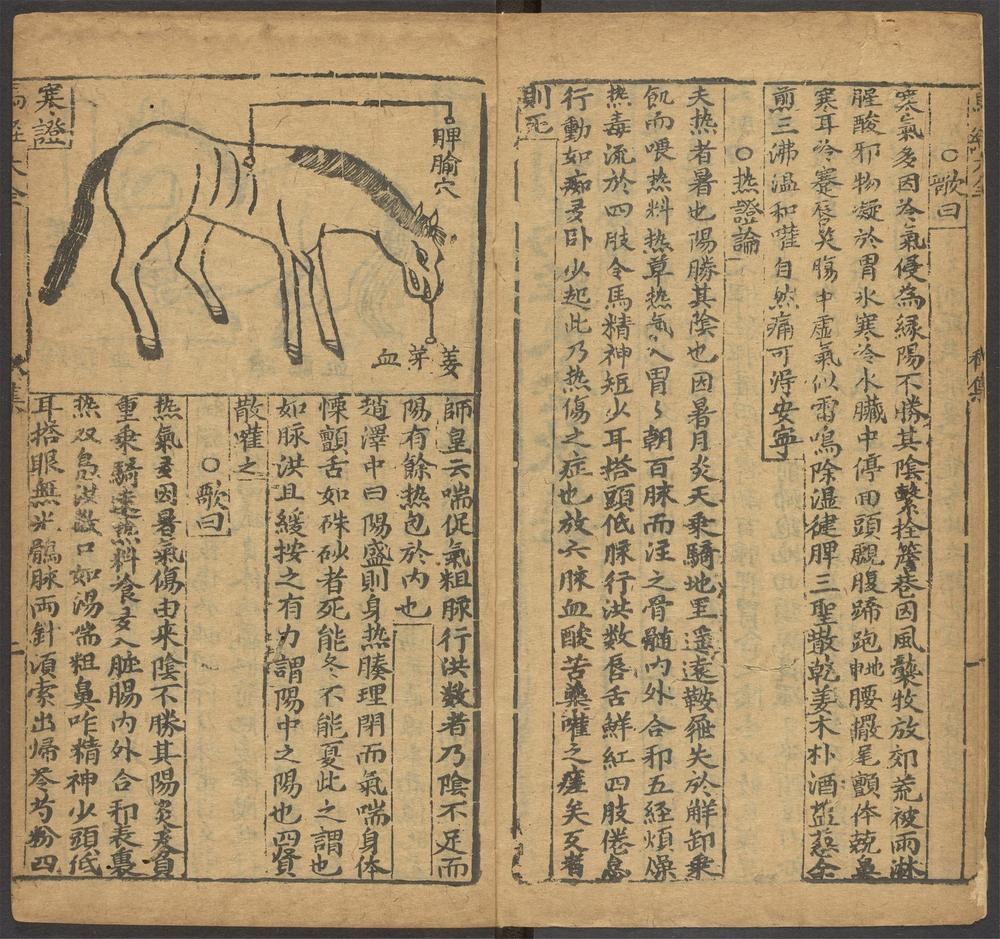 馬經大全
春集
○歌曰
寒氣多因冷氣侵為緣陽不勝其陰繫拴簷巷因風襲牧放郊荒被雨淋
腥酸邪物凝於胃氷寒冷水臟中停回頭覷腹蹄跑地腰䠞尾顫体競
寒耳冷蹇唇奕膓中虛氣似雷鳴除湿健脾三聖散乾姜木朴酒葱
煎三沸溫和嚾自然痛可得安寧
○热證論
夫热者暑也陽勝其陰也因暑月炎天乗騎地里遥遠鞍不離失於觧卸乗
飢而喂热料热草热氣入胃〻朝百脉而注之骨髓内外合邪五経煩燥
热毒流於四肢令馬精神短少耳搭頭低脉行洪数唇舌鮮紅四肢倦怠
行動如痴多卧少起此乃热傷之症也放六脉血酸苦藥嚾之痊矣歹者
則死
寒證
脾腧穴
姜芽血
師皇云喘促氣粗脉行洪数者乃陰不足而
陽有餘热包於内也
趙澤中曰陽盛則身热腠理閉而氣喘身体
慄顫舌如硃砂者死能冬不能夏此之謂也
如脉洪且緩按之有力謂陽中之陽也四賢
散嚾之
○歌曰
热氣多因暑氣傷由来陰不勝其陽炎天負
重乗騎遠热料飡多入脏腸内外合邪表裏
热双鳬洪数口如湯喘粗鼻咋精神少頭低
耳搭眼無光鶻脉両針須索出帰芩芍粉四